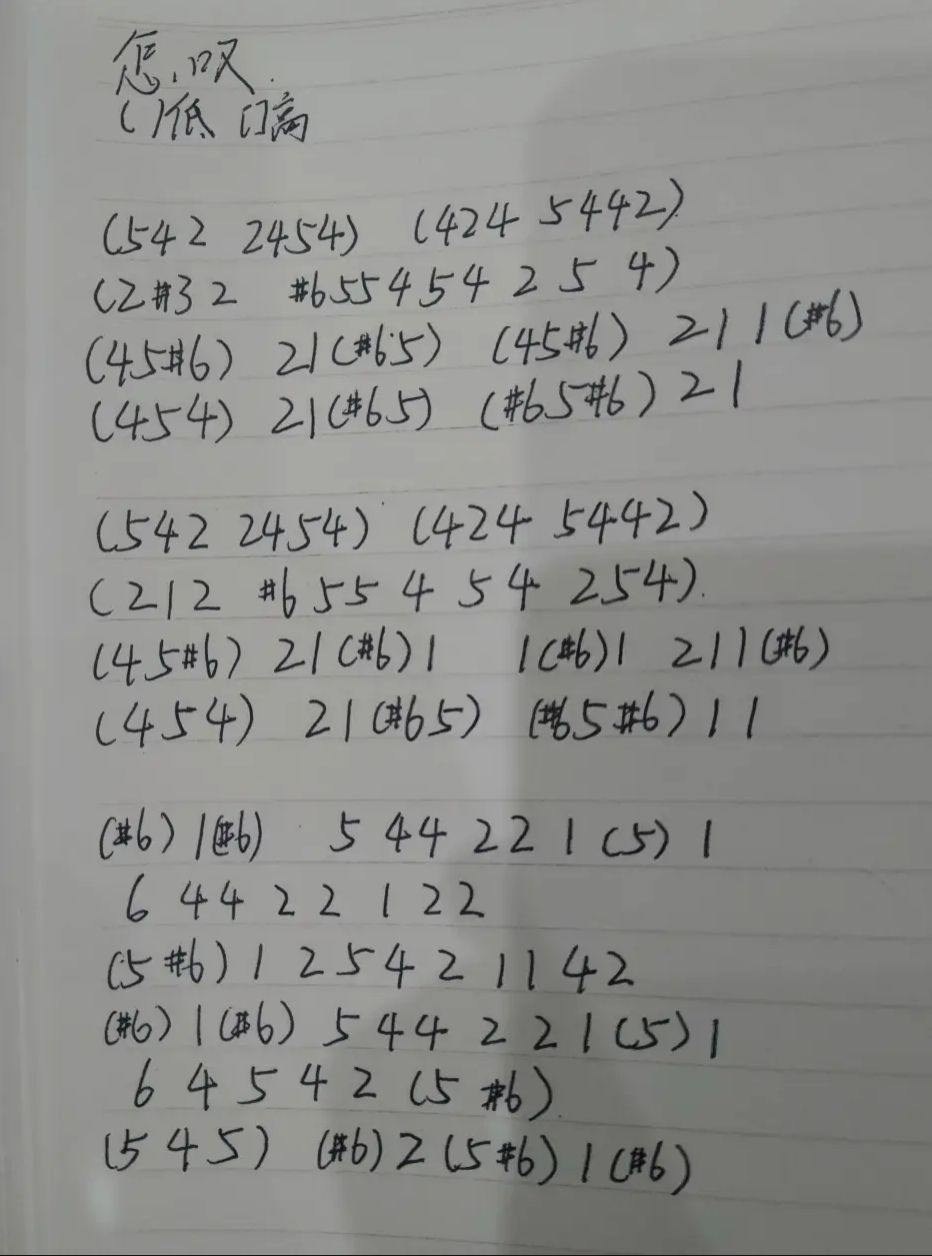 怎叹.
( )低 [ ]高
(542 2454) (424 5442)
(2#32 #6554542 5 4)
(45#6) 21(#65) (45#6) 211(#6)
(454) 21(#65) (#65#6) 21
(542 2454) (424 5442)
(212 #655 4 54 254).
(45#6) 21(#6)1 1(#6)1 211(#6)
(454) 21(#65) (#65#6) 11
(#6) 1(#6) 5 44 22 1 (5) 1
6 44 22 1 22
(5 #6) 1 2 5 4 2 11 42
(#6) 1(#6) 5 44 2 2 1 (5) 1
6 4 5 4 2 (5 #6)
(5 4 5) (#6) 2 (5 #6) 1 (#6)